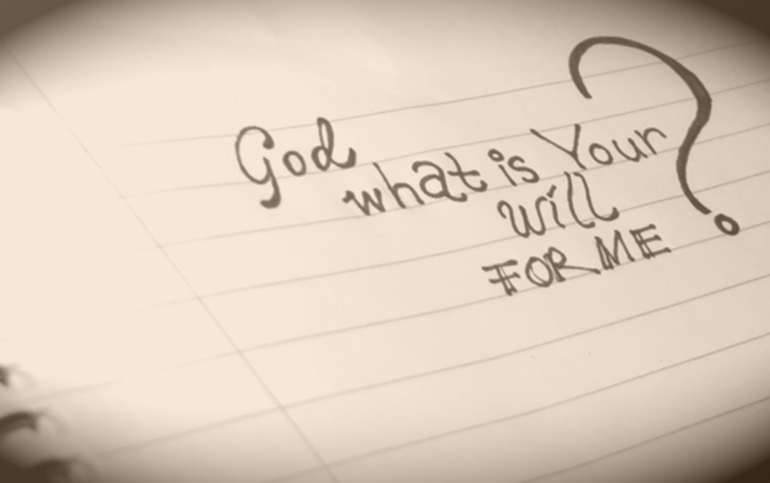 God
what is Your
will
FOR ME ?